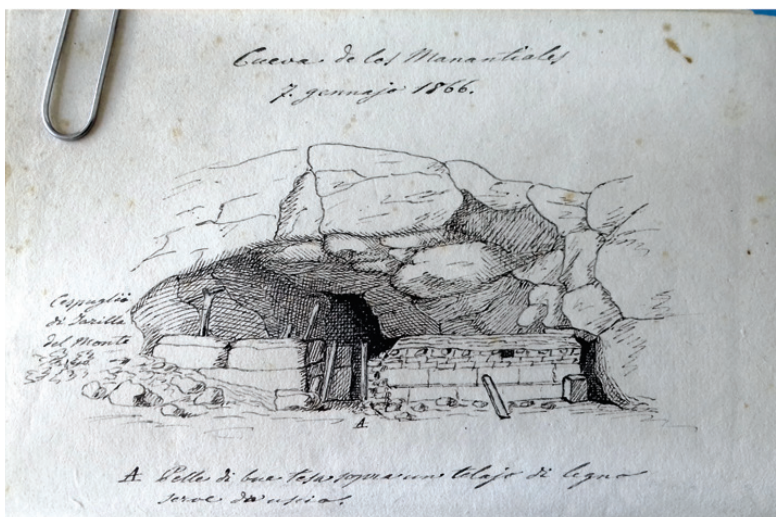 Cueva de los Manantiales
7. gennajo 1866.
Cespuglio
di Jarilla
del Monte
A
A Pelle di bue tesa sopra un telajo di legno
serve di uscio.